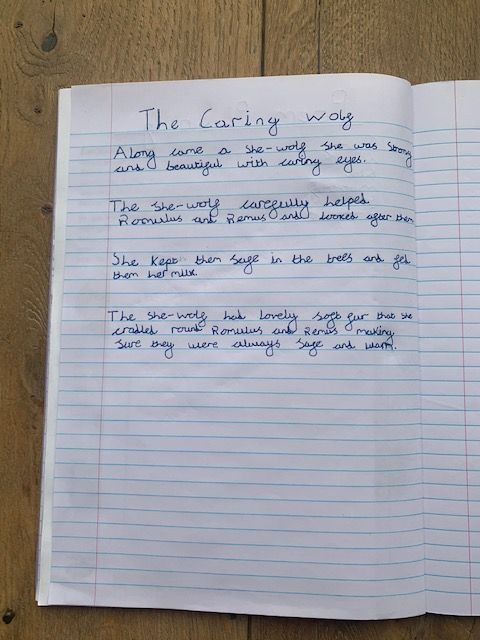 The Caring Wolf
Along came a She-wolf She was Strong
and beautiful with caring eyes.
The She-wolf carefully helped
Romulus and Remus and looked after them
She Kept them safe in the trees and fed
them her milk.
The She-wolf had lovely soft fur that she
cradled round Romulus and Remus making
Sure they were always safe and warm.